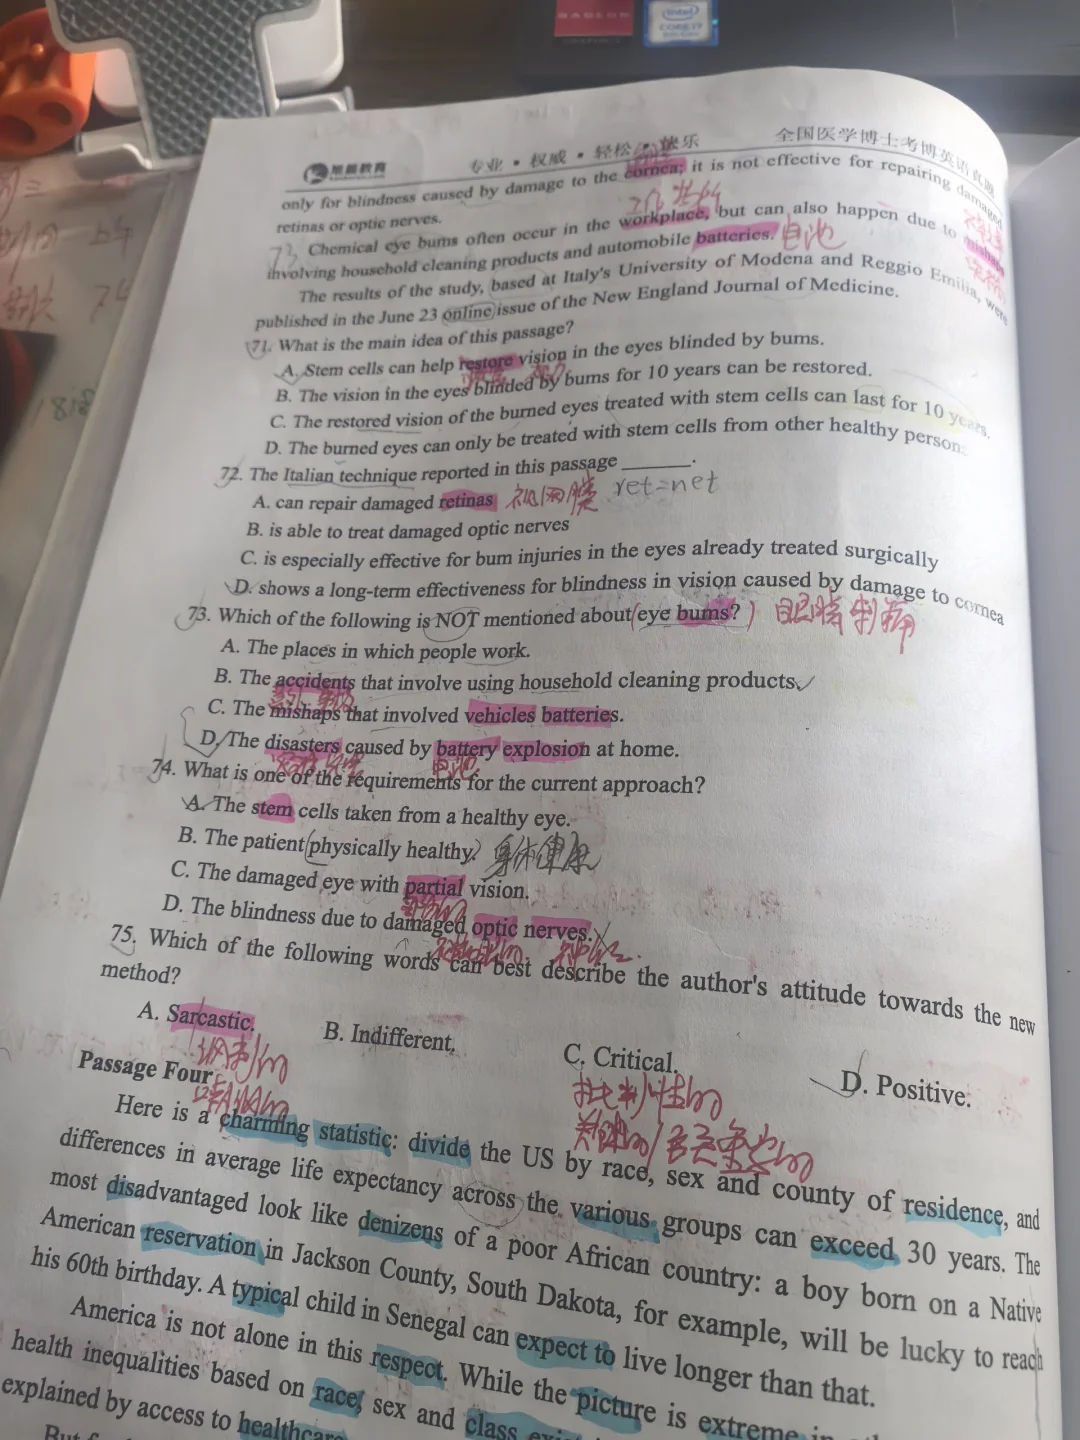 RADEON
GRAPHICS
intel
CORE i7
旭晨教育
专业·权威·轻松·快乐
全国医学博士考博英语真题
only for blindness caused by damage to the cornea; it is not effective for repairing damaged
retinas or optic nerves.
工作场所
73 Chemical eye bums often occur in the workplace, but can also happen due to mishaps
involving household cleaning products and automobile batteries. 电池
The results of the study, based at Italy's University of Modena and Reggio Emilia, were
published in the June 23 online issue of the New England Journal of Medicine.
71. What is the main idea of this passage?
A. Stem cells can help restore vision in the eyes blinded by bums.
B. The vision in the eyes blinded by bums for 10 years can be restored.
C. The restored vision of the burned eyes treated with stem cells can last for 10 years.
D. The burned eyes can only be treated with stem cells from other healthy person.
72. The Italian technique reported in this passage ______.
A. can repair damaged retinas 视网膜 ret=net
B. is able to treat damaged optic nerves
C. is especially effective for bum injuries in the eyes already treated surgically
D. shows a long-term effectiveness for blindness in vision caused by damage to cornea
73. Which of the following is NOT mentioned about (eye bums?) 眼睛刺痛
A. The places in which people work.
B. The accidents that involve using household cleaning products.
C. The mishaps that involved vehicles batteries.
D. The disasters caused by battery explosion at home.
电池
74. What is one of the requirements for the current approach?
A. The stem cells taken from a healthy eye.
B. The patient physically healthy. 身体健康
C. The damaged eye with partial vision.
D. The blindness due to damaged optic nerves.
神经
75. Which of the following words can best describe the author's attitude towards the new
method?
A. Sarcastic. B. Indifferent. C. Critical. D. Positive.
讽刺的
批判性的
Passage Four
嘲讽的
关键的
Here is a charming statistic: divide the US by race, sex and county of residence, and
differences in average life expectancy across the various groups can exceed 30 years. The
most disadvantaged look like denizens of a poor African country: a boy born on a Native
American reservation in Jackson County, South Dakota, for example, will be lucky to reach
his 60th birthday. A typical child in Senegal can expect to live longer than that.
America is not alone in this respect. While the picture is extreme in
health inequalities based on race, sex and class
explained by access to healthcare
But